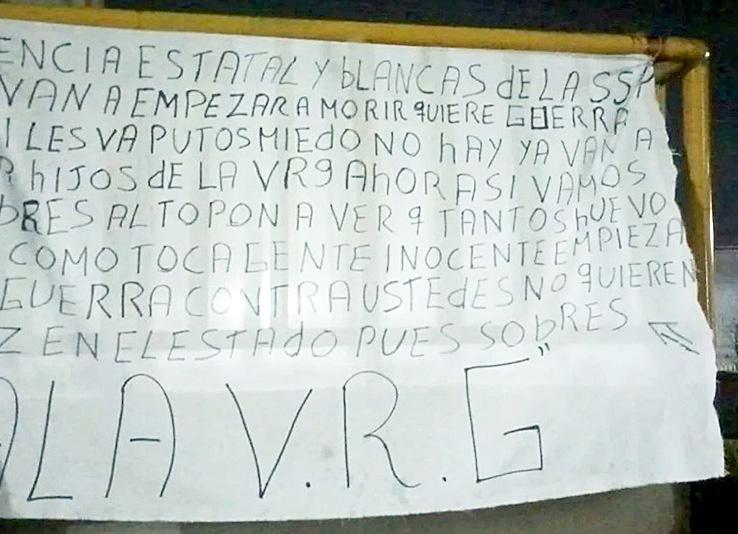 ENCIA ESTATAL Y bLANCAS dE LA SSP
VAN A EMPEZAR A MORIR qUIERE GUERRA
I LES VA PUTOS MIEdO NO hAY YA VAN A
R hIJOS dE LA VR9 AhORA SI VAMOS
bRES AL TOPON A VER q TANTOS hUEVO
COMO TOCA GENTE INOCENTE EMPIEZA
GUERRA CONTRA USTEdES NO qUIEREN
Z EN EL ESTAdO PUES SObRES
LA V.R.G"